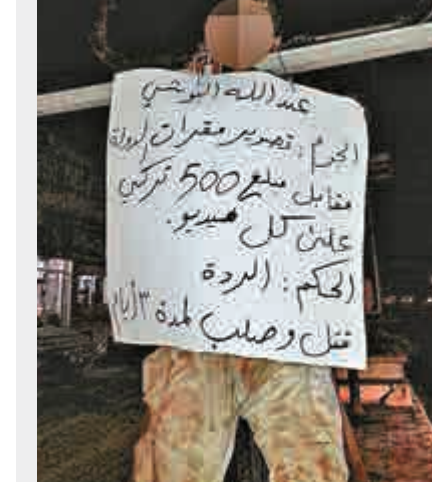 عبد الله البوشي
الجرم : تصوير مقرات الدولة
مقابل مبلغ 500 تركي
على كل فيديو.
الحكم : الردة
قتل وصلب لمدة ٣ أيام